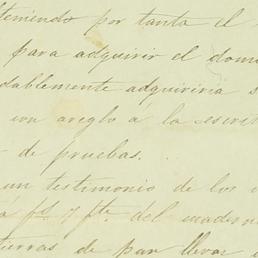 teniendo por tanta el
para adquirir el dom
dablemente adquiriria s
con areglo á la escrit
de pruebas.
un testimonio de los
fs. 7 fte. del cuadern
tierras de pan llevar